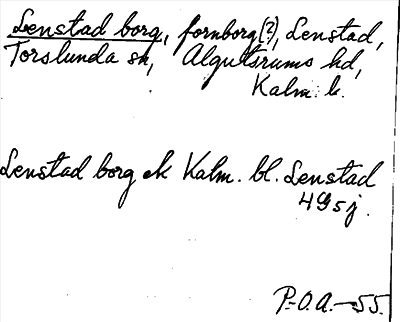 Lenstad borg, fornborg(?), Lenstad,
Torslunda sn, Algutsrums hd,
Kalm. l.
Lenstad borg ek Kalm. bl. Lenstad
4G5j.
P.O.A.—55.